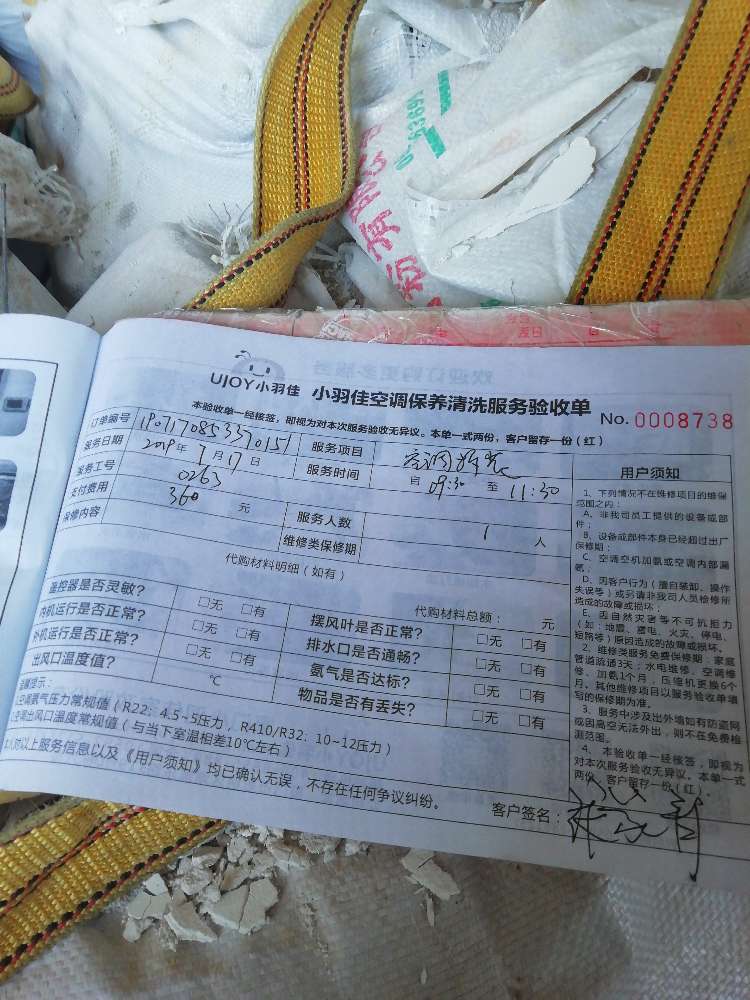 UJOY小羽佳 小羽佳空调保养清洗服务验收单
No. 0008738
本验收单一经接签，即视为对本次服务验收无异议。本单一式两份，客户留存一份（红）
订单编号 1907170853370151 服务项目
服务日期 2019年7月17日 服务时间 自 09:30 至 11:30
服务工号 0263
支付费用 360 元 服务人数 1 人
保修内容 维修类保修期
代购材料明细（如有）
代购材料总额： 元
遥控器是否灵敏？ □无 □有 摆风叶是否正常？ □无 □有
内机运行是否正常？ □无 □有 排水口是否通畅？ □无 □有
外机运行是否正常？ □无 □有 氨气是否达标？ □无 □有
出风口温度值？ ℃ 物品是否有丢失？ □无 □有
温馨提示：
空调氨气压力常规值（R22：4.5~5压力，R410/R32：10~12压力）
空调出风口温度常规值（与当下室温相差10℃左右）
本人对以上服务信息以及《用户须知》均已确认无误，不存在任何争议纠纷。
客户签名：
用户须知
1、下列情况不在维修项目的维保
范围之内：
A、非我司员工提供的设备或部
件；
B、设备或部件本身已经超过出厂
保修期；
C、空调空机加氨或空调内部漏
氨；
D、因客户行为（擅自装卸、操作
失误等）或另请非我司人员检修所
造成的故障或损坏；
E、因自然灾害等不可抗拒力
（如：地震、雷电、火灾、停电、
短路等）原因造成的故障或损坏。
2、维修类服务免费保修期：家庭
管道疏通3天；水电维修、空调维
修、加氨1个月，压缩机更换6个
月。其他维修项目以服务验收单填
写的保修期为准。
3、服务中涉及出外墙如有防盗网
或因高空无法外出，则不在免费检
测范围。
4、本验收单一经接签，即视为
对本次服务验收无异议。本单一式
两份，客户留存一份（红）。